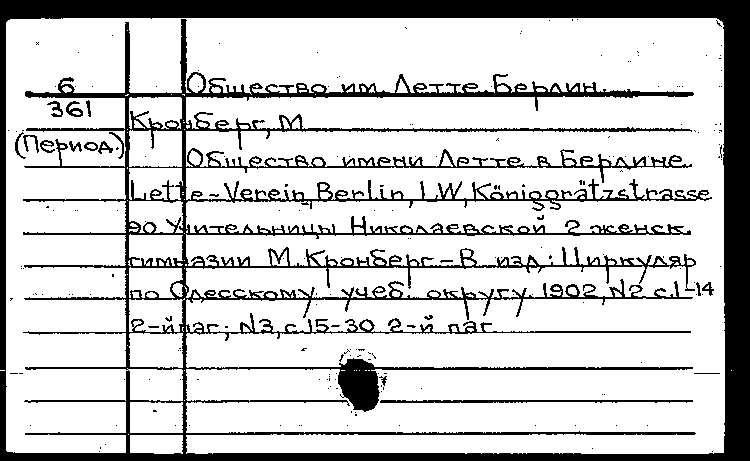 6
Общество им. Летте. Берлин.
361
Кронберг, М
(Период.)
Общество имени Летте в Берлине.
Lette-Verein, Berlin, LW, Königgrätzstrasse
90. Учительницы Николаевской 2 женск.
гимназии М. Кронберг. - В изд.: Циркуляр
по Одесскому учеб. округу. 1902, N2 с.1-14
2-й паг; N3, с.15-30 2-й паг